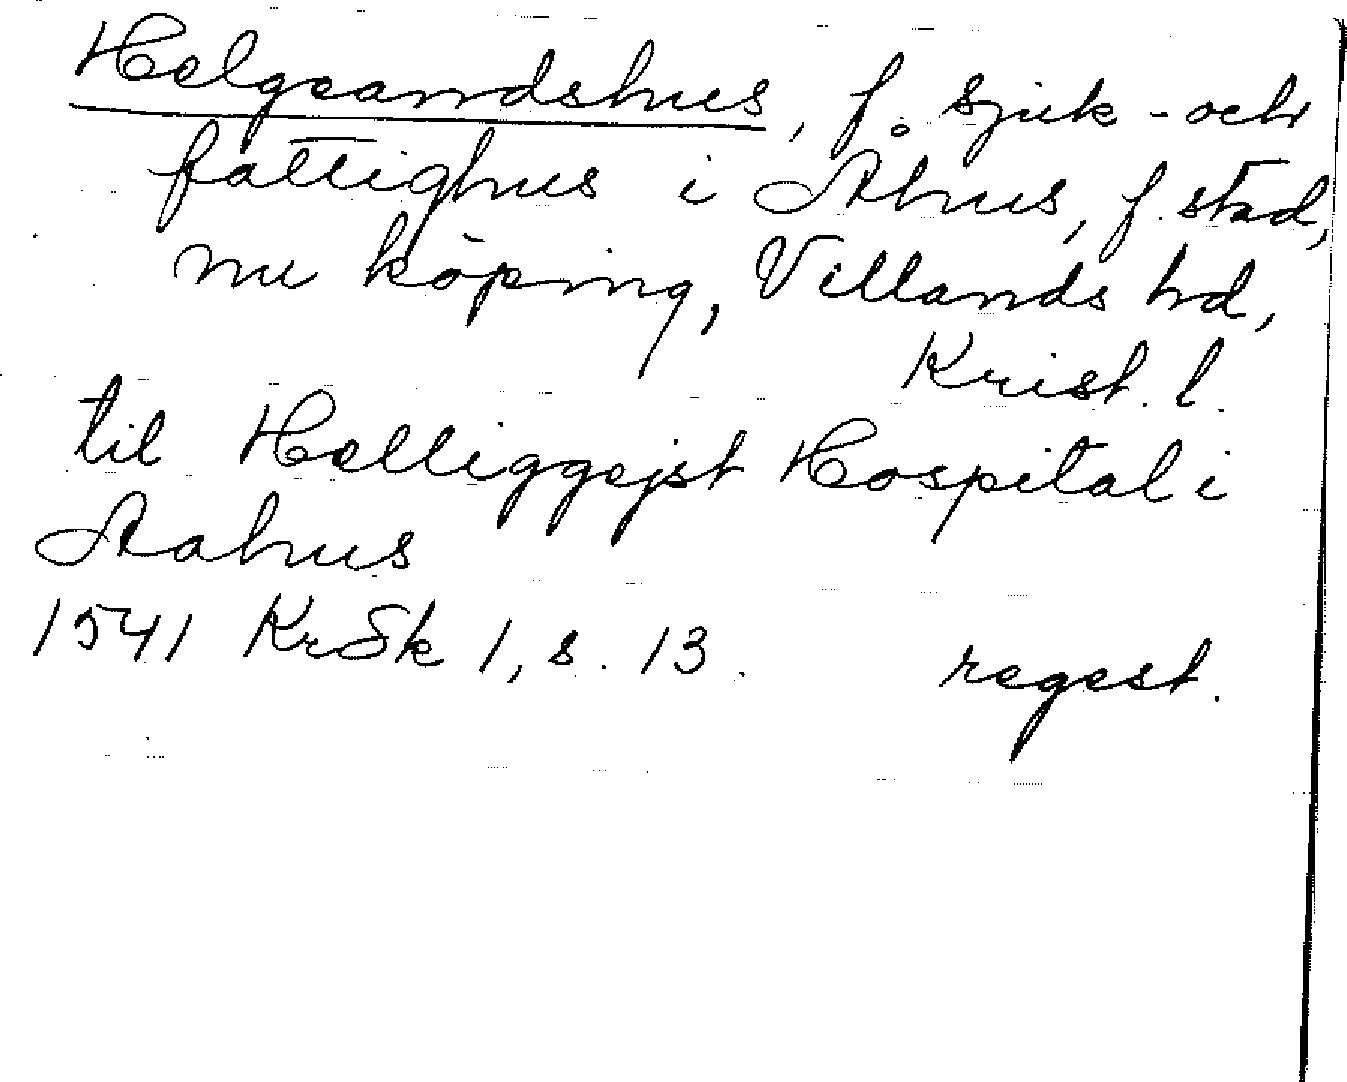 Helgeandshus, f. sjuk- och
fattighus i Åhus, f. stad,
nu köping, Villands hd,
Krist. l.
til Helliggejst Hospital i
Aahus
1541 KrSk 1, s. 13. regest.